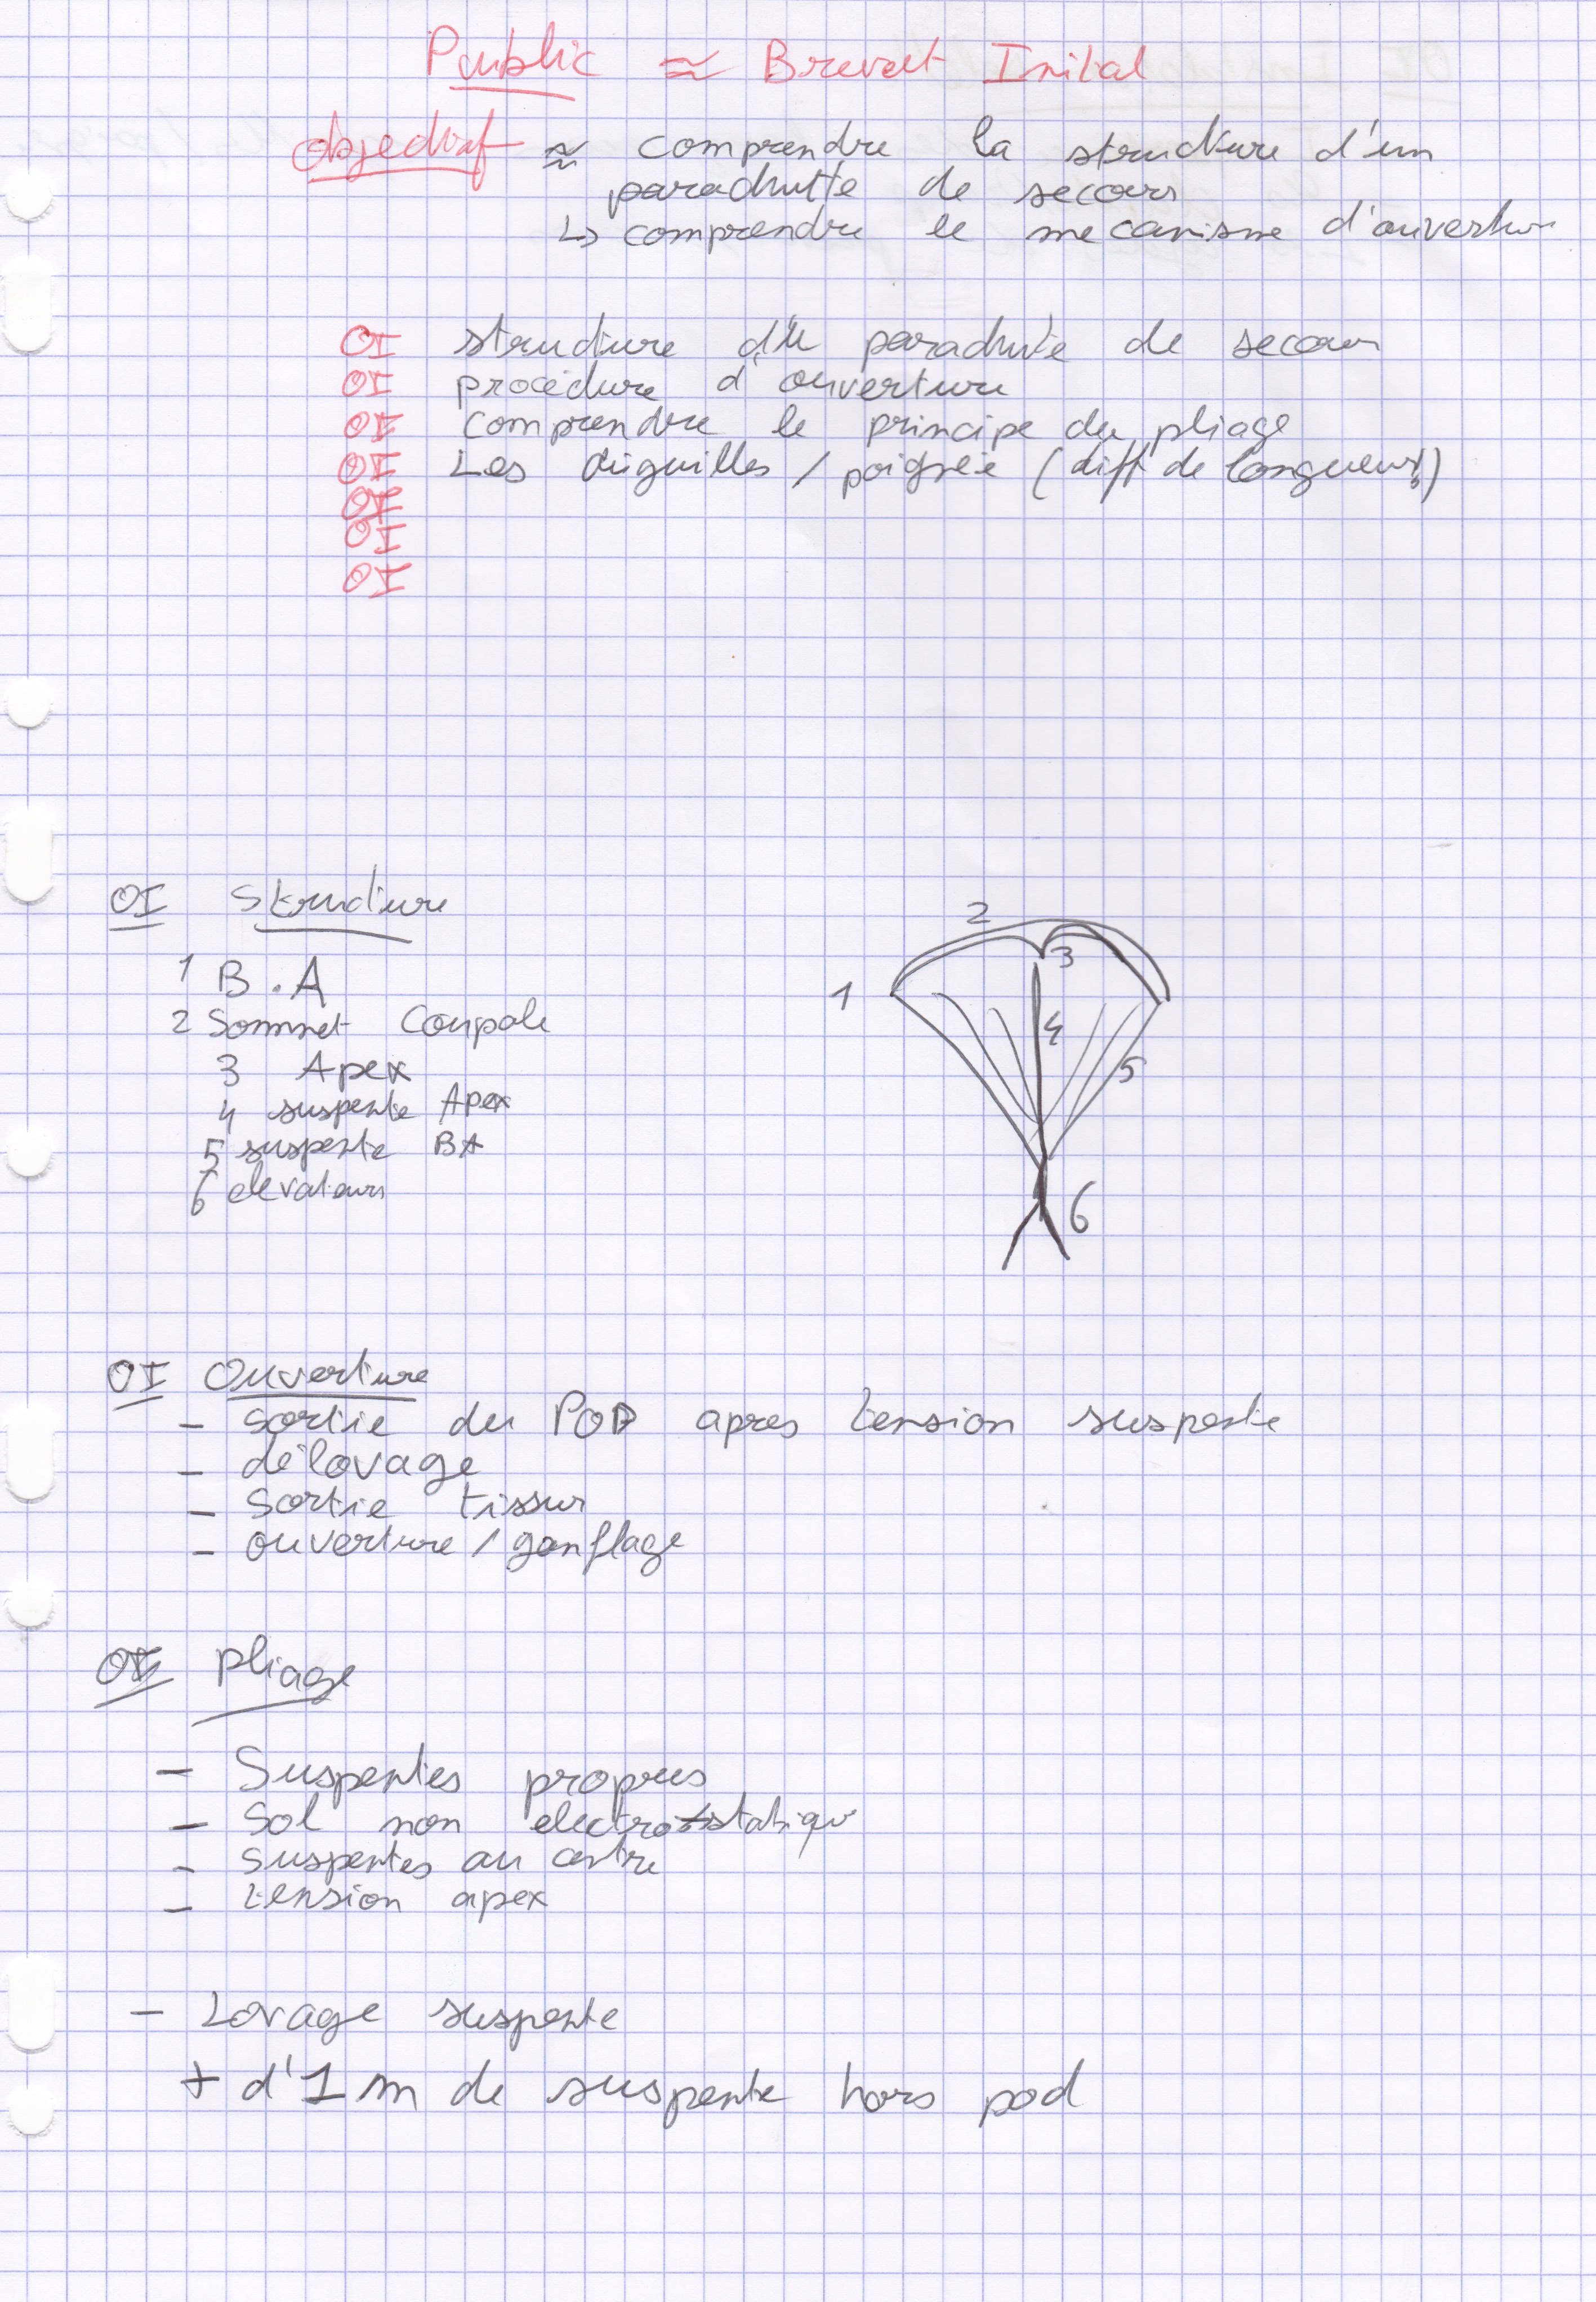 Public ≈ Brevet Initial
Objectif ≈ comprendre la structure d'un
parachutte de secours
↳ comprendre le mecanisme d'ouverture
OI structure d'un parachute de secours
OI procédure d'ouverture
OI comprendre le principe du pliage
OI Les aiguilles / poignée (diff de longueur!)
OI
OI
OI
OI Structure
1 B.A
2 Sommet Coupole
3 Apex
4 suspente Apex
5 suspente BA
6 elevateurs
2
3
1
4
5
6
OI Ouverture
- sortie du POD apres tension suspente
- délovage
- Sortie tissu
- ouverture / gonflage
OI Pliage
- Suspentes propres
- Sol non electrostatique
- Suspentes au centre
- tension apex
- Lovage suspente
+ d'1 m de suspente hors pod